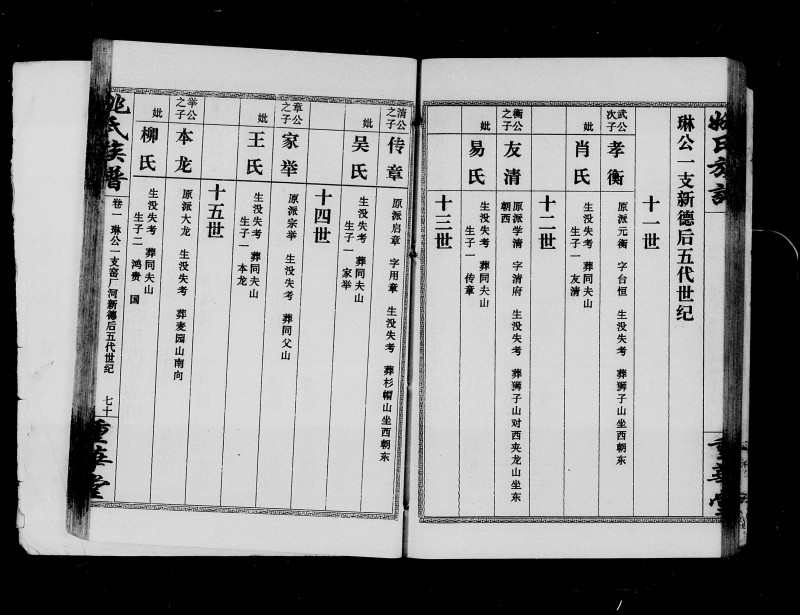 琳公一支新德后五代世纪
十一世
武公次子
孝衡
原派元衡 字台恒 生没失考 葬狮子山坐西朝东
妣
肖氏
生没失考 葬同夫山
生子一 友清
十二世
衡公之子
友清
原派学清 字清府 生没失考 葬狮子山对西夹龙山坐东
朝西
妣
易氏
生没失考 葬同夫山
生子一 传章
十三世
清公之子
传章
原派启章 字用章 生没失考 葬杉帽山坐西朝东
妣
吴氏
生没失考 葬同夫山
生子一 家举
十四世
章公之子
家举
原派宗举 生没失考 葬同父山
妣
王氏
生没失考 葬同夫山
生子一 本龙
十五世
举公之子
本龙
原派大龙 生没失考 葬麦园山南向
妣
柳氏
生没失考 葬同夫山
生子二 鸿贵 国
姚氏族谱
卷一 琳公一支窑厂河新德后五代世纪
七十
重华堂